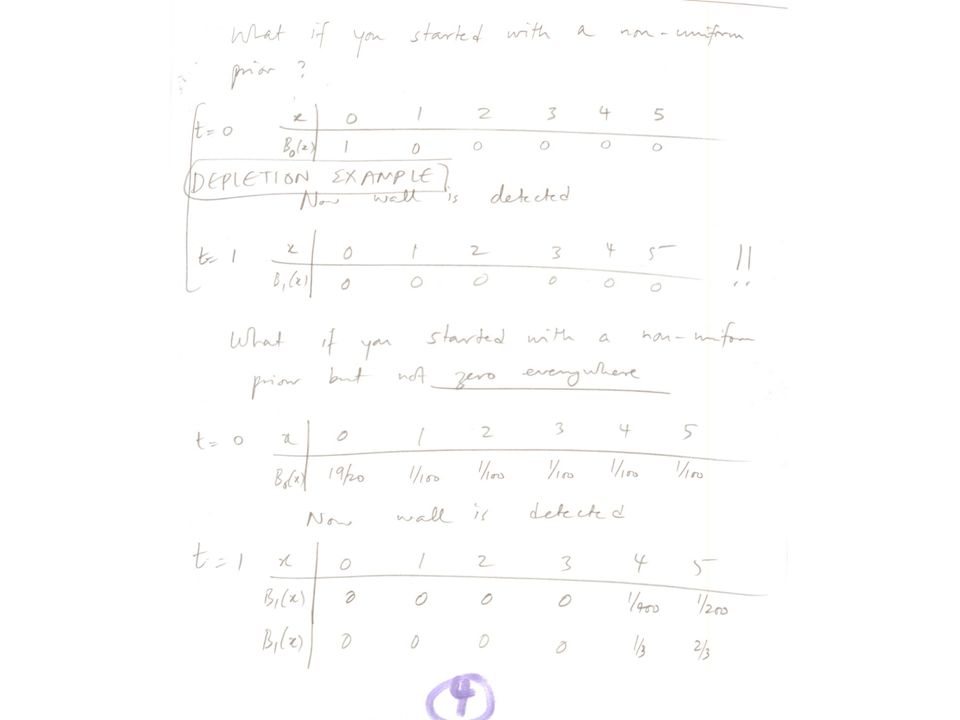 What if you started with a non-uniform
prior ?
t= 0 x 0 1 2 3 4 5
B₀(x) 1 0 0 0 0 0
DEPLETION EXAMPLE
Now wall is detected
t= 1 x 0 1 2 3 4 5 !!
B₁(x) 0 0 0 0 0 0
What if you started with a non-uniform
prior but not zero everywhere
t= 0 x 0 1 2 3 4 5
B₀(x) 19/20 1/100 1/100 1/100 1/100 1/100
Now wall is detected
t= 1 x 0 1 2 3 4 5
B₁(x) 0 0 0 0 1/400 1/200
B₁(x) 0 0 0 0 1/3 2/3
4